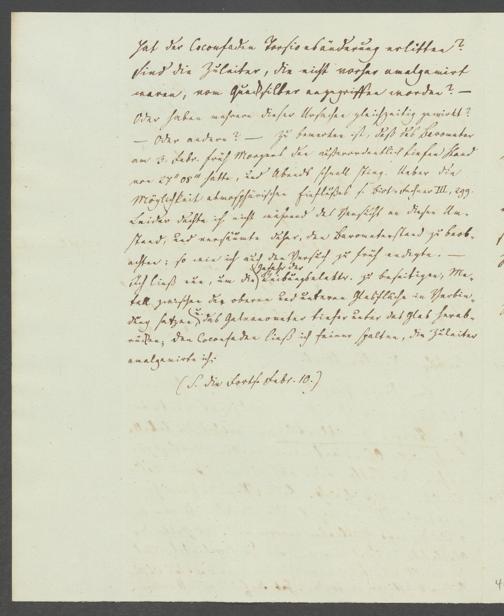 Hat der Coconfaden Torsionsänderung erlitten?
Sind die Zuleiter, die nicht vorher amalgamirt
waren, vom Quecksilber angegriffen worden? —
Oder haben mehrere dieser Ursachen gleichzeitig gewirkt?
— Oder andere? — Zu bemerken ist, daß das Barometer
am 3. Febr. früh Morgens den außerordentlich tiefen Stand
von 27" 08"' hatte, und Abends schnell stieg. Ueber die
Möglichkeit atmosphärischen Einflußes s. Fechner III, 299.
Leider dachte ich nicht während des Versuchs an diesen Um-
stand, und versäumte daher, den Barometerstand zu beob-
achten; so wie ich auch den Versuch zu früh endigte. —
Ich ließ nun, um die Gefahr der Reibungselektr. zu beseitigen, Me-
tall zwischen der oberen und unteren Glasfläche in Verbin-
dung setzen, u. das Galvanometer tiefer unter das Glas herab-
rücken; den Coconfaden ließ ich feiner spalten, die Zuleiter
amalgamirte ich.
(S. die Forts. Febr. 10.)